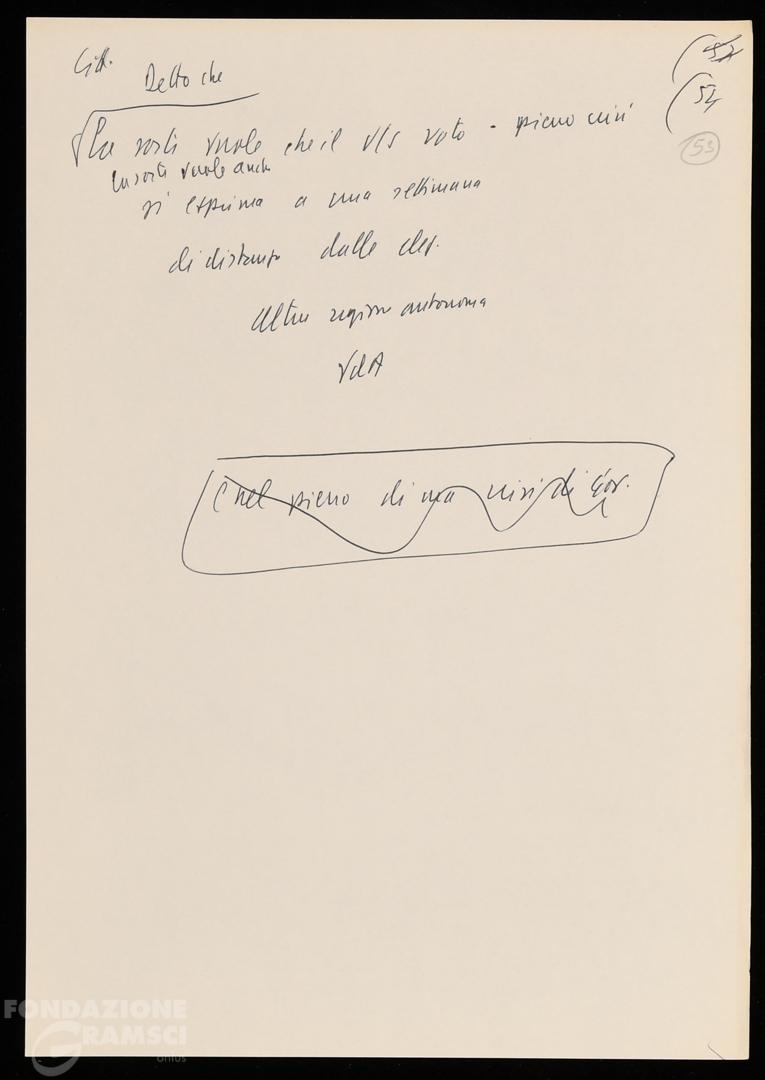 Citt.
Detto che
La sorte vuole che il v/s voto - pieno crisi
La sorte vuole anche
si esprima a una settimana
di distanza dalle elez.
Altra regione autonoma
VdA
(nel pieno di una crisi di gov.
54
53
FONDAZIONE
GRAMSCI
onlus